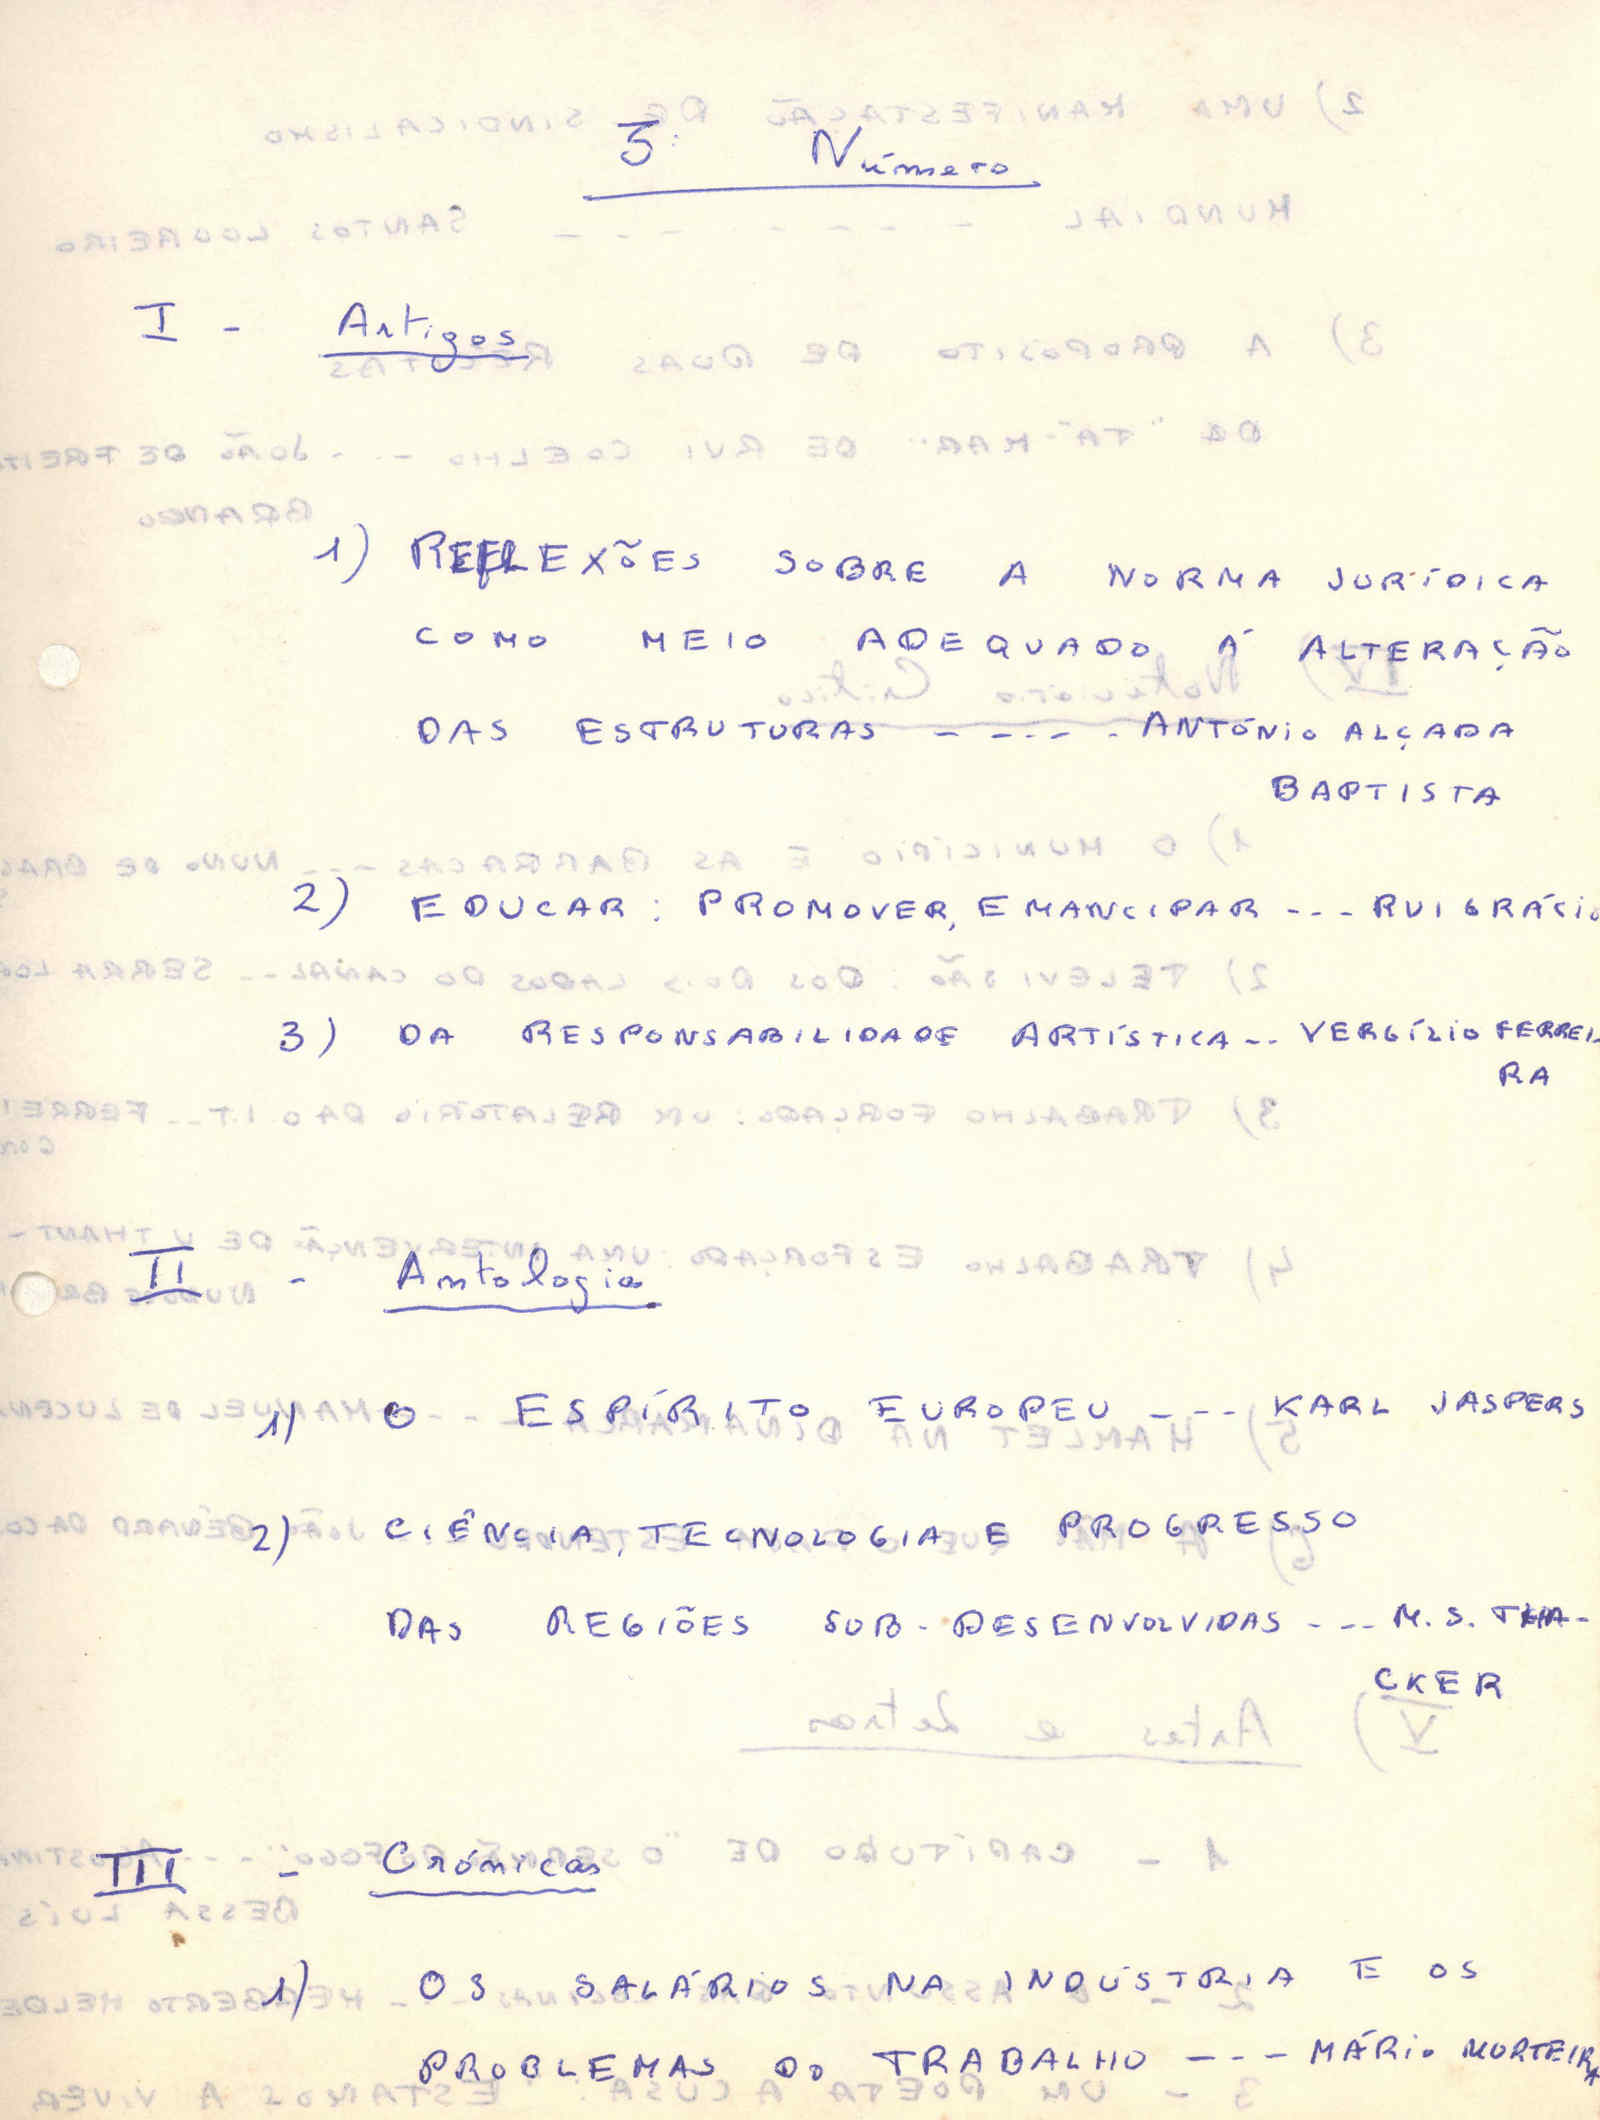 3º Número
I - Artigos
1) REFLEXÕES SOBRE A NORMA JURÍDICA
COMO MEIO ADEQUADO Á ALTERAÇÃO
DAS ESTRUTURAS - - - - - ANTÓNIO ALÇADA
BAPTISTA
2) EDUCAR: PROMOVER, EMANCIPAR --- RUI GRÁCIO
3) DA RESPONSABILIDADE ARTÍSTICA -- VERGÍLIO FERREI-
RA
II - Antologia
1) O ESPÍRITO EUROPEU --- KARL JASPERS
2) CIÊNCIA, TECNOLOGIA E PROGRESSO
DAS REGIÕES SUB-DESENVOLVIDAS --- M. S. THA-
CKER
III - Crónicas
1) OS SALÁRIOS NA INDÚSTRIA E OS
PROBLEMAS DO TRABALHO --- MÁRIO MURTEIRA